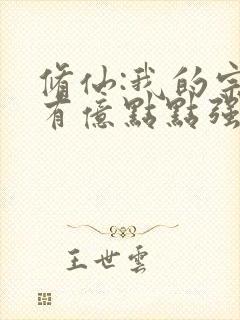 脩仙:我的宗
有億點點强
王世雲